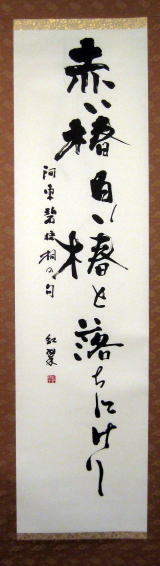 赤い椿白い椿と落ちにけり
河東碧梧桐の句
紅翠